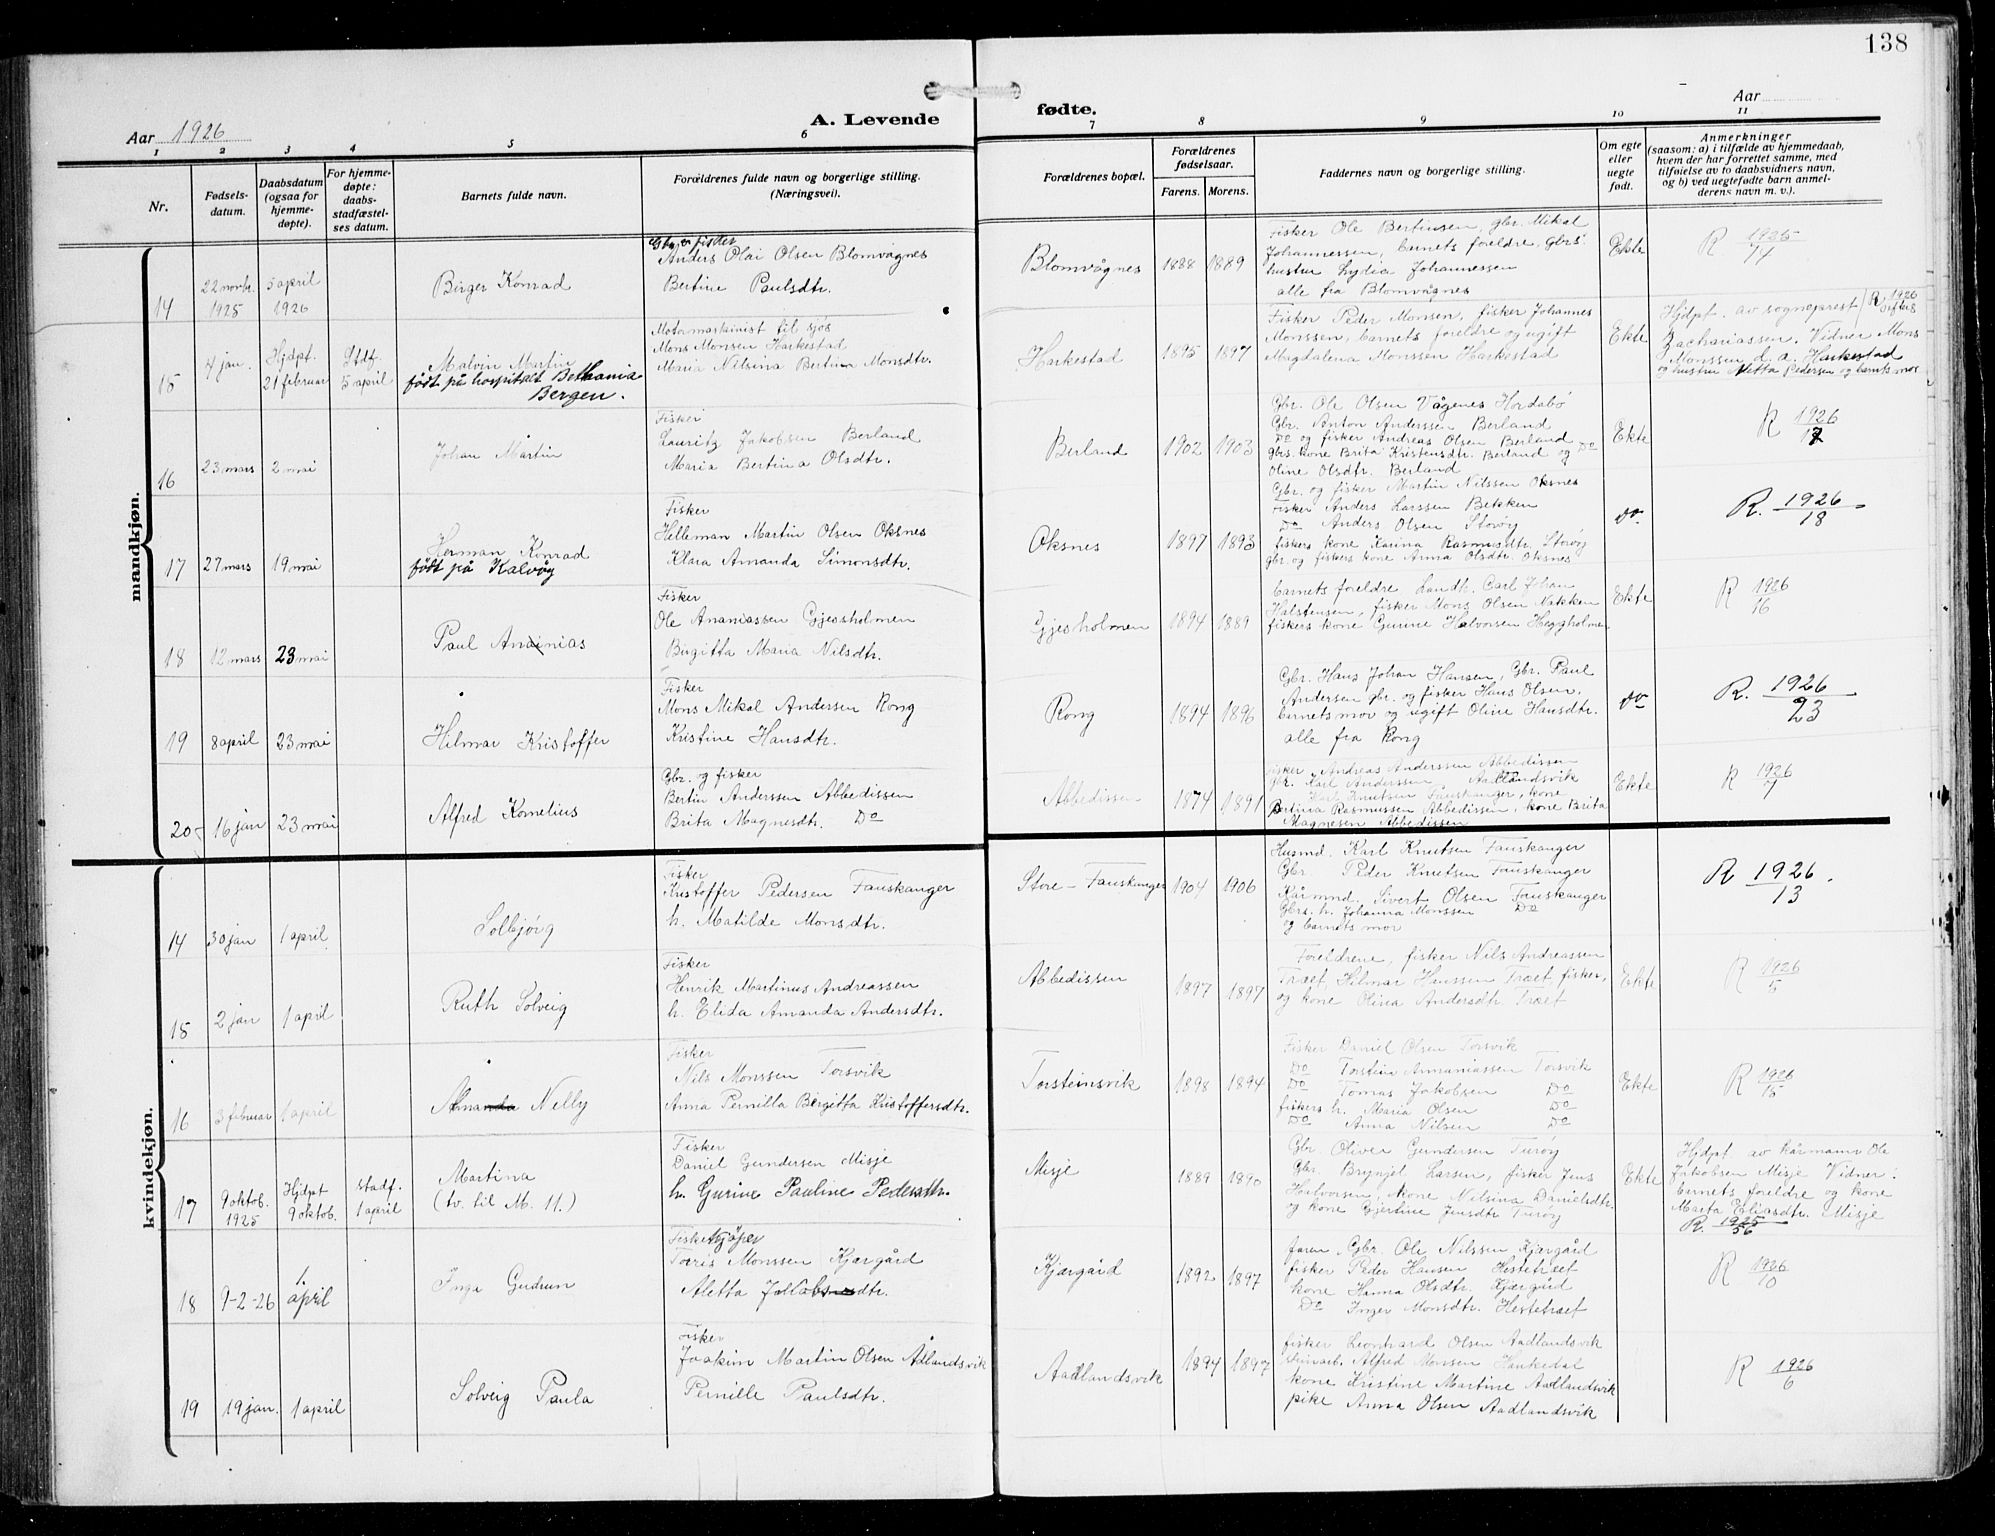 138
Aar 1926
A. Levende
fødte.
Aar
1 2 3 4 5 6 7 8 9 10 11
Nr.
Fødsels-
datum.
Daabsdatum
(ogsaa for
hjemme-
døpte).
For hjemme-
døpte:
daabs-
stadfæstel-
ses datum.
Barnets fulde navn.
Forældrenes fulde navn og borgerlige stilling.
(Næringsvei).
Forældrenes bopæl.
Forældrenes
fødselsaar.
Farens. Morens.
Faddernes navn og borgerlige stilling.
Om egte
eller
uegte
født.
Anmerkninger
(saasom: a) i tilfælde av hjemmedaab,
hvem der har forrettet samme, med
tilføielse av to daabsvidners navn,
og b) ved uegtefødte barn anmel-
derens navn m. v.).
mandkjøn.
14
22 novbr.
1925
5 april
1926
Birger Konrad
Gbr. og fisker
Anders Olai Olsen Blomvågnes
Bertine Paulsdtr.
Blomvågnes
1888 1889
Fisker Ole Bertinsen, gbr. Mikal
Johannessen, barnets foreldre, gbrs
hustru Lydia Johannessen
alle fra Blomvågnes
Ekte
R 1925
15
4 jan.
Hjdpt.
21 februar
Stdf.
5 april
Malvin Martin
født på hospitalet Bethania
Bergen.
Motormaskinist til sjøs
Mons Monssen Harkestad
Maria Nilsina Bertina Monsdtr.
Harkestad
1895 1897
Fisker Peder Monsen, fisker Johannes
Monssen, barnets foreldre og ugift
Magdalena Monssen Harkestad
Ekte
Hjdpt. av sogneprest R 1926
Zachariassen. Vidner Mons
Monssen d. a. Harkestad
og hustru Aletta Pedersen og barnets mor
16
23 mars
2 mai
Johan Martin
Fisker
Lauritz Jakobsen Berland
Maria Bertina Olsdtr.
Berland
1902 1903
Gbr. Ole Olsen Vågenes Hordabø
Gbr. Anton Anderssen Berland
Do og fisker Andreas Olsen Berland
gbrs. kone Brita Kristensdtr. Berland og Do
Oline Olsdtr. Berland
Ekte
R 1926
17
27 mars
19 mai
Herman Konrad
født på Kalvøy
Fisker
Helleman Martin Olsen Oksnes
Klara Amanda Simonsdtr.
Oksnes
1897 1893
Gbr. og fisker Martin Nilssen Oksnes
Fisker Anders Larssen Bekken
Do Anders Olsen Storøy
fiskers kone Karina Rasmusdtr. Storøy
gbr. og fiskers kone Anna Olsdtr. Oksnes
do
R. 1926
18
18
12 mars
23 mai
Paul Ananias
Fisker
Ole Ananiassen Gjesholmen
Birgitta Maria Nilsdtr.
Gjesholmen
1894 1889
barnets foreldre Landh. Carl Johan
Halstensen, fisker Mons Olsen Nakken
fiskers kone Gunne Halvorsen Heggholmen
Ekte
R 1926
16
19
8 april
23 mai
Hilmar Kristoffer
Fisker
Mons Mikal Andersen Rong
Kristine Hansdtr.
Rong
1894 1896
Gbr. Hans Johan Hansen, Gbr. Paul
Andersen gbr. og fisker Hans Olsen.
barnets mor og ugift Oline Hansdtr.
alle fra Rong
do
R. 1926
23
20
16 jan
23 mai
Alfred Kornelius
Gbr. og fisker
Bertin Anderssen Abbedissen
Brita Magnesdtr. Do
Abbedissen
1874 1891
fisker Andreas Anderssen Abbedissen
Gbr. Karl Anderssen Aadlandsvik
Karl Knutsen Fauskanger, kone
Bertina Rasmussen Abbedissen, kone Brita
Magnesen Abbedissen
Ekte
R 1926
7
kvindekjøn.
14
30 jan
1 april
Solbjørg
Fisker
Kristoffer Pedersen Fauskanger
h. Matilde Monsdtr.
Store-Fauskanger
1904 1906
Husmd. Karl Knutsen Fauskanger
Gbr. Peder Knutsen Fauskanger
Kårmnd. Sivert Olsen Fauskanger
Gbrs. h. Johanna Monssen Do
og barnets mor
R 1926
13
15
2 jan
1 april
Ruth Solveig
Fisker
Henrik Martinus Andreassen
h. Elida Amanda Andersdtr.
Abbedissen
1897 1897
Foreldrene, fisker Nils Andreassen
Træet, Hilmar Hanssen Træet fisker,
og kone Olina Andersdtr. Træet
Ekte
R 1926
5
16
3 februar
1 april
Amanda Nelly
Fisker
Nils Monssen Torsvik
Anna Pernilla Bergitta Kristoffersdtr.
Torsteinsvik
1898 1894
Fisker Daniel Olsen Torsvik
Do Torstein Annaniassen Torsvik
Do Tomas Jakobsen Do
fiskers h. Maria Olsen Do
Do Anna Nilsen Do
Ekte
R 1926
15
17
9 oktob.
1925
Hjdpt
9 oktob.
stadf.
1 april
Martina
(tv. til M. 11.)
Fisker
Daniel Gundersen Misje
h. Gurine Pauline Pedersdtr.
Misje
1889 1890
Gbr. Oliver Gundersen Turøy
Gbr. Brynjel Larsen, fisker Jens
Halvorsen, kone Nilsina Danielsdtr.
og kone Gjertine Jensdtr Turøy
Ekte
Hjdpt av kårmann Ole
Jakobsen Misje Vidner:
barnets foreldre og kone
Marta Eliasdtr. Misje
R. 1925
56
18
9-2-26
1
april
Inga Gudrun
Fiskekjøper
Torris Monssen Kjærgård
Aletta Jakobsdtr.
Kjærgård
1892 1897
faren, Gbr. Ole Nilssen Kjærgård
fisker Peder Hansen Hestetræet
kone Hanna Olsdtr. Kjærgård
Do Inger Monsdtr. Hestetræet
R 1926
10
19
19 jan.
1 april
Solveig Paula
Fisker
Joakim Martin Olsen Ådlandsvik
Pernille Paulsdtr.
Aadlandsvik
1894 1897
fisker Leonhard Olsen Aadlandsvik
Alfred Monsen Hankedal
kone Kristine Martine Aadlandsvik
pike Anna Olsen Aadlandsvik
R 1926
6